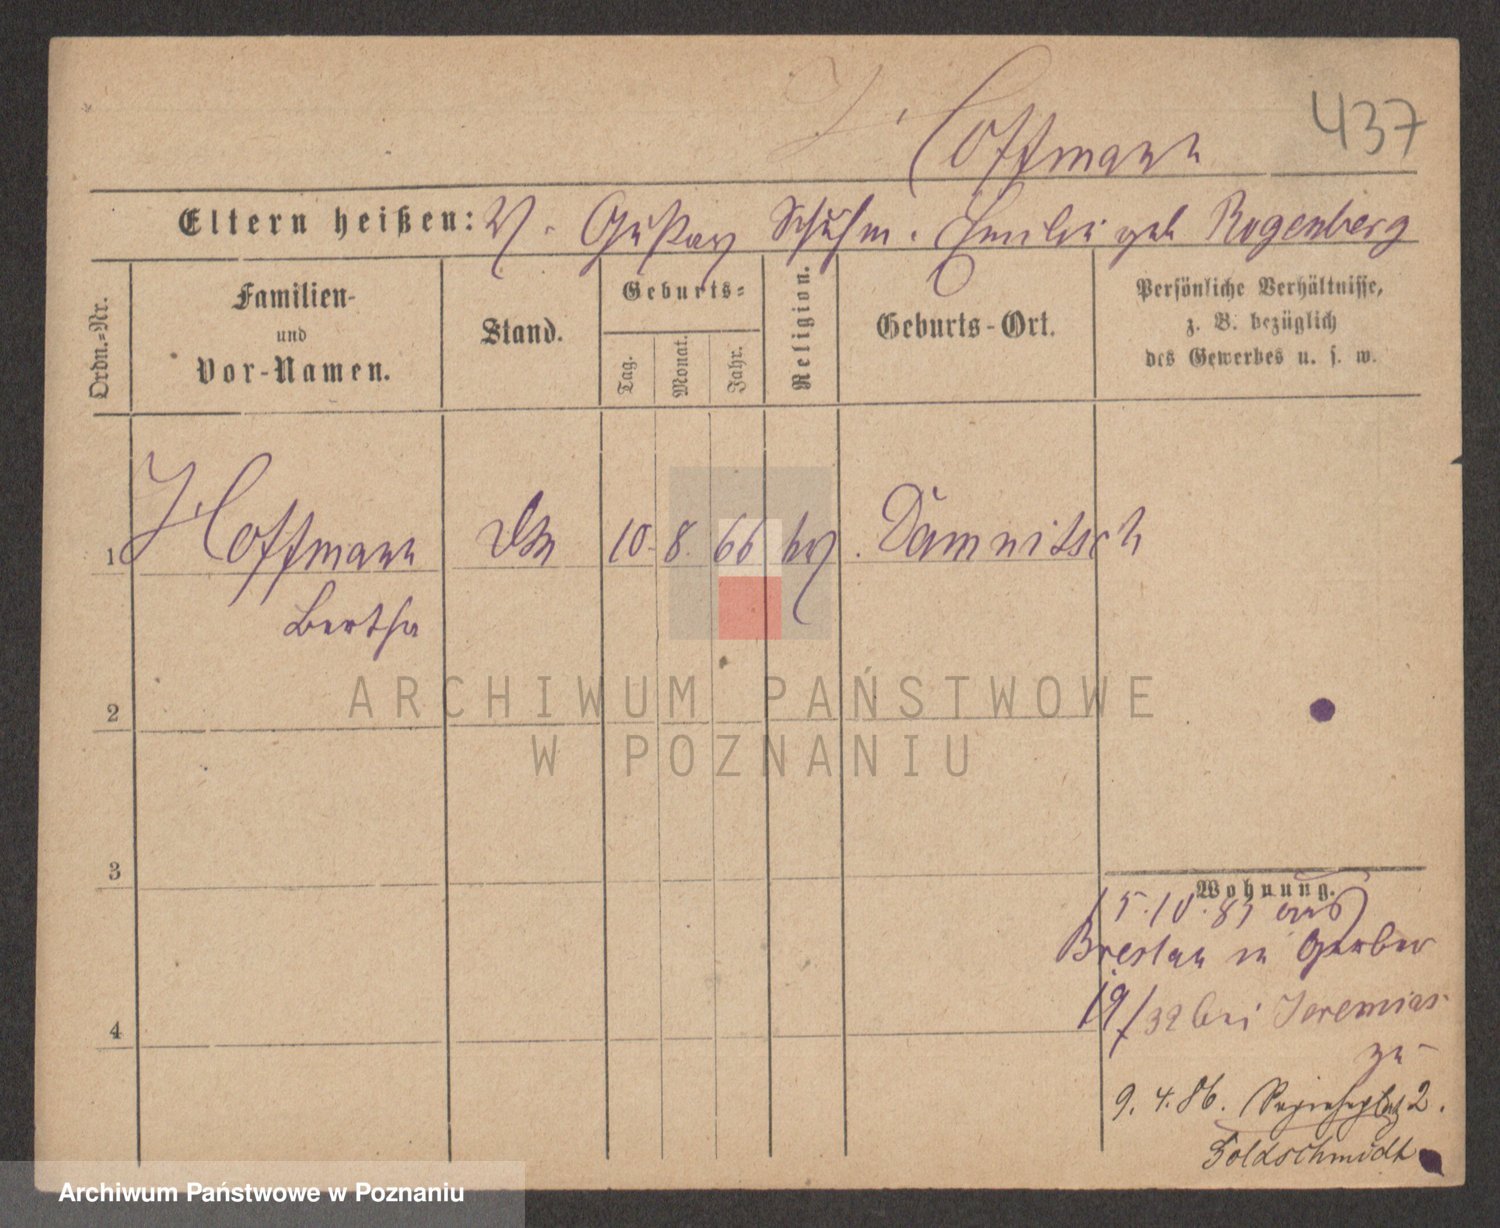 437
Hoffmann
Eltern heißen: V. Gustav Schuhm. Emilie geb Rogenberg
Ordn.-Nr.
Familien-
und
Vor-Namen.
Stand.
Geburts-
Tag.
Monat.
Jahr.
Religion.
Geburts-Ort.
Persönliche Verhältnisse,
z. B. bezüglich
des Gewerbes u. s. w.
1 Hoffmann 10. 8. 66 Damnitsch
Bertha
ARCHIWUM PAŃSTWOWE
W POZNANIU
2
3
4
Wohnung.
15.10.85 aus
Breslau in Gerber
19/32 bei Jeremias
zu
9.4.86. 2.
Goldschmidt
Archiwum Państwowe w Poznaniu